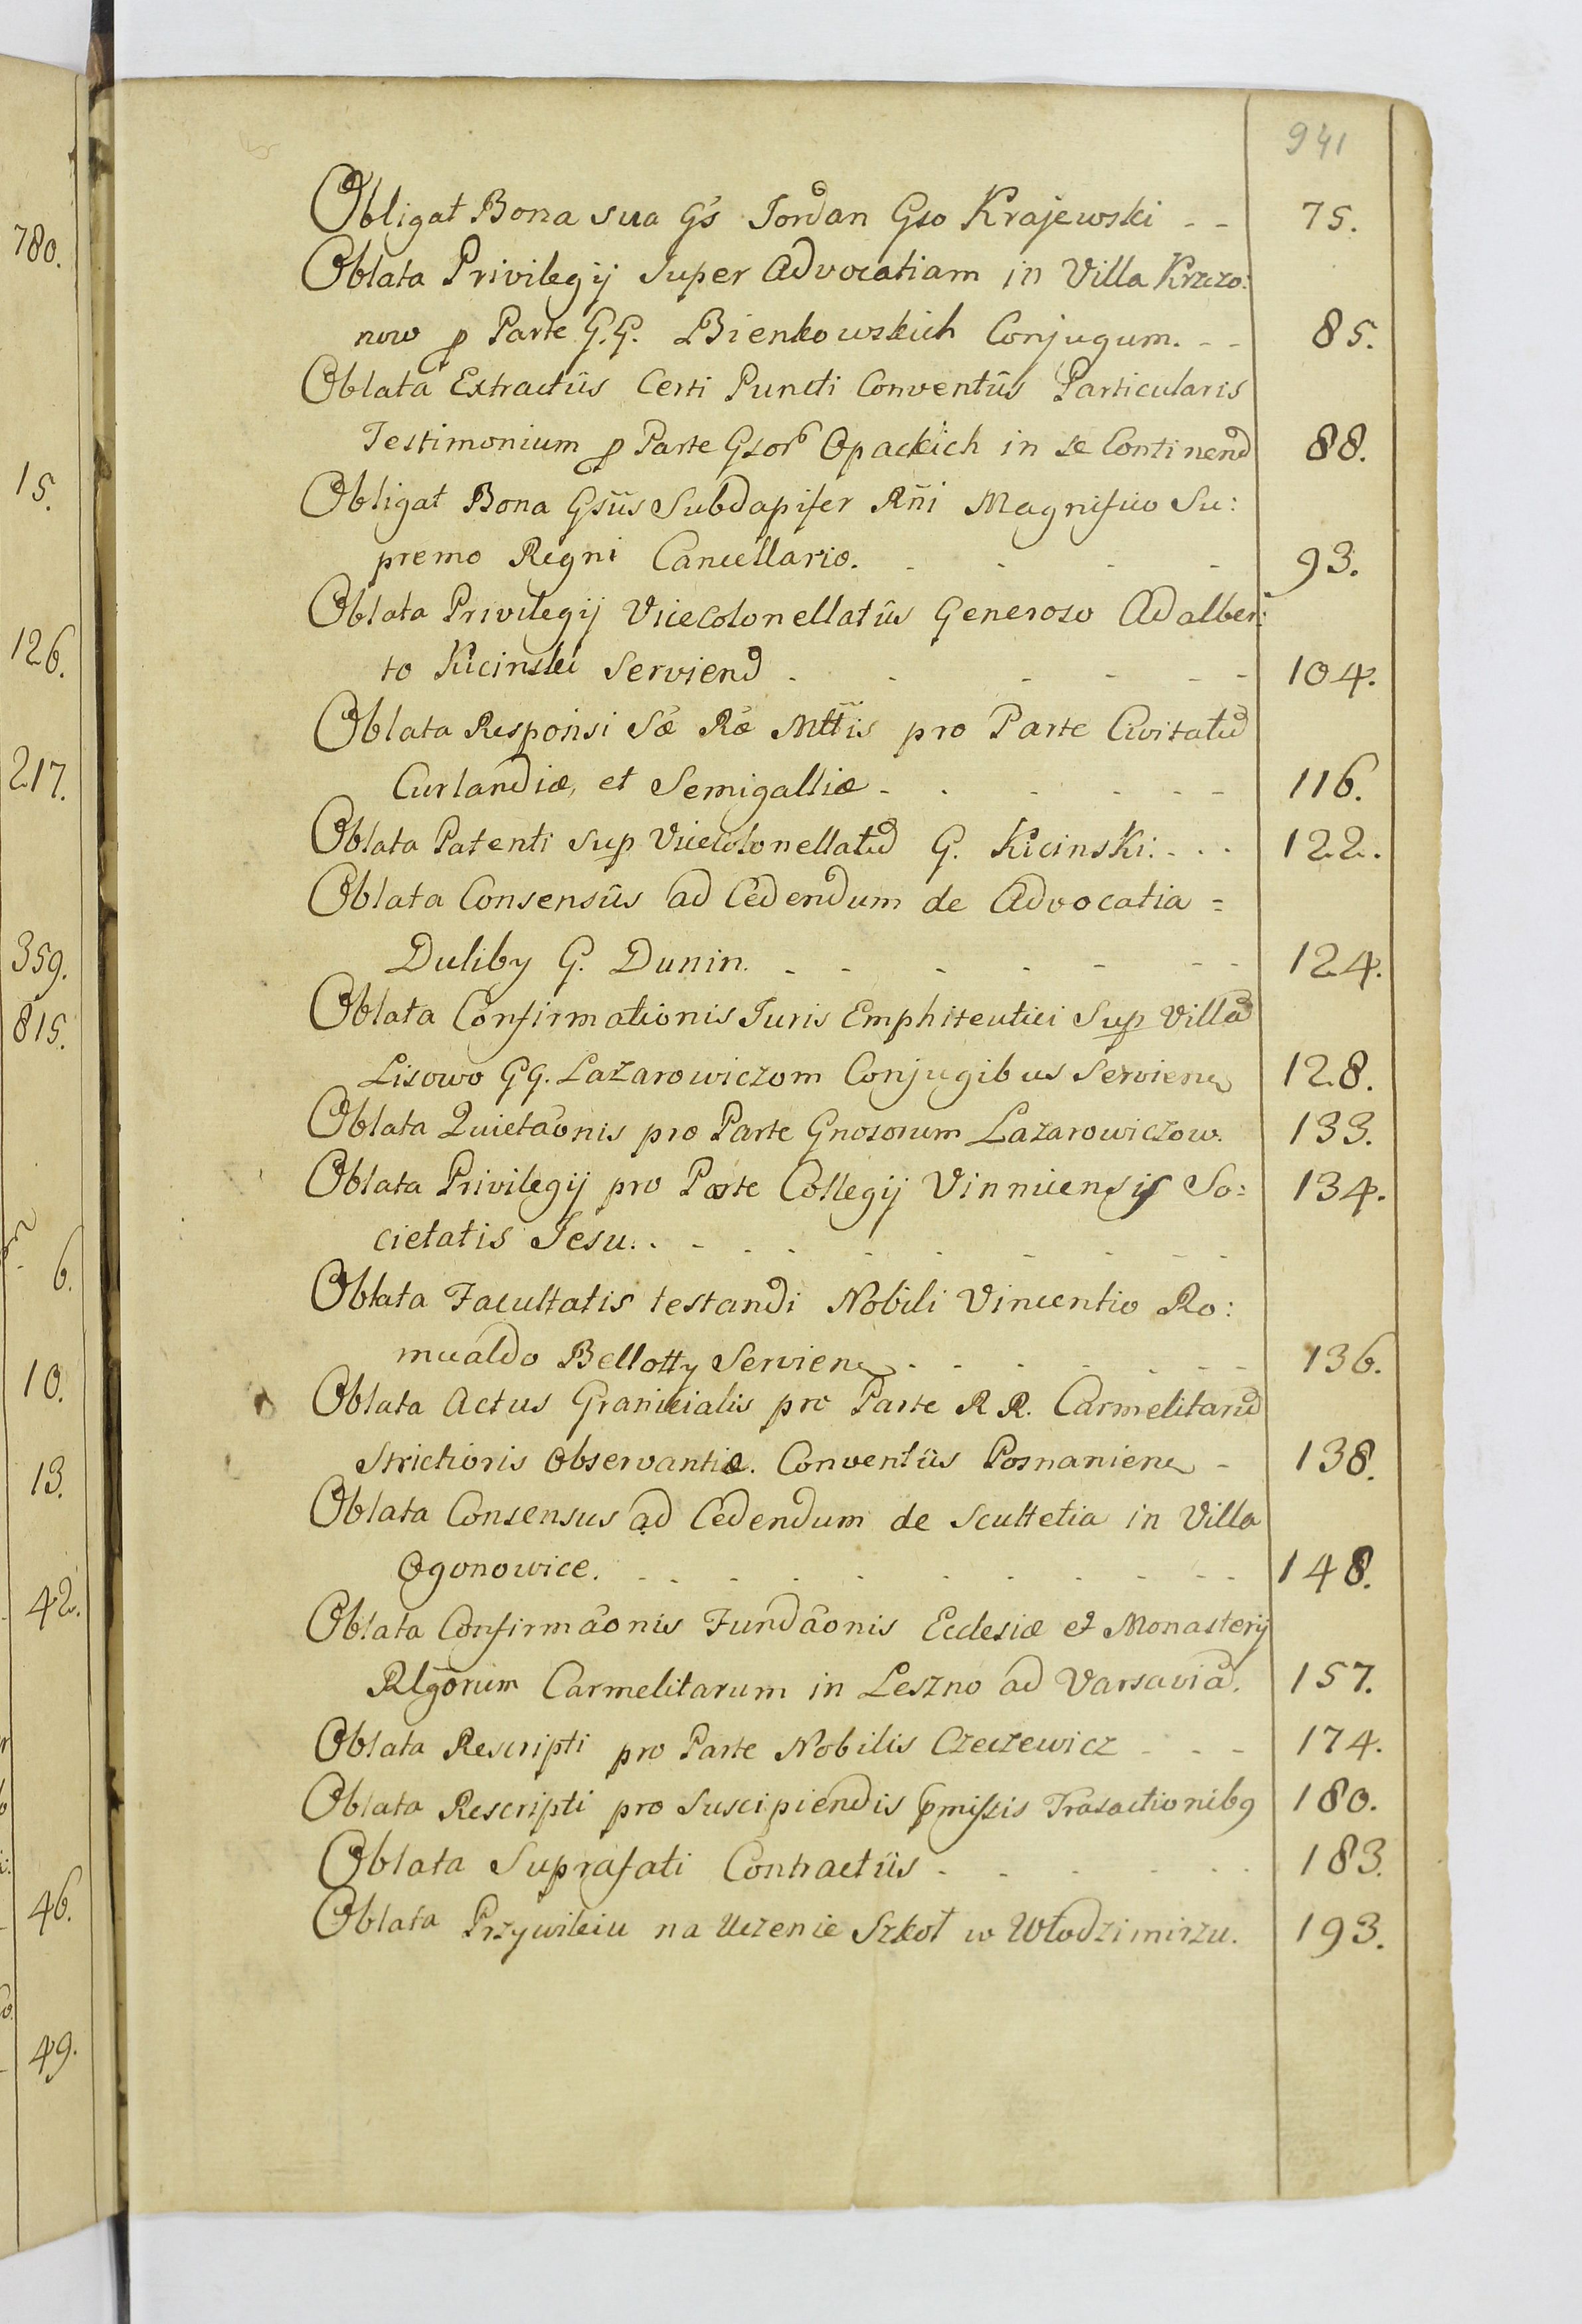 941
Obligat Bona sua Gs Jordan Gso Krajewski - - 75.
Oblata Privilegij super Advocatiam in Villa Krzczo:
now p Parte G.G. Bienkowskich Conjugum. - - 85.
Oblata Extractûs Certi Puncti Conventûs Particularis
Testimonium p Parte Gsor Opackich in se Continend 88.
Obligat Bona Gsus Subdapifer Rñi Magnifico Su:
premo Regni Cancellario. - - - - 93.
Oblata Privilegij Vicecolonellatûs Generoso Adalber:
to Kicinski Serviend - - - - - - 104.
Oblata Responsi Sæ Ræ Mttis pro Parte Civitatu
Curlandiæ, et Semigalliæ - - - - - - 116.
Oblata Patenti sup Vicecolonellatu G. Kicinski. - - - 122.
Oblata Consensûs ad Cedendum de Advocatia =
Duliby G. Dunin. - - - - - - - 124.
Oblata Confirmationis Juris Emphiteutici Sup Villa
Lisowo GG. Lazarowiczom Conjugibus Servien 128.
Oblata Quietãonis pro Parte Gnosorum Lazarowiczow. 133.
Oblata Privilegij pro Parte Collegij Vinnicensis So= 134.
cietatis Jesu. - - - - - - - - -
Oblata Facultatis testandi Nobili Vincentio Ro:
mualdo Bellotty Servien - - - - - - - 136.
Oblata Actus Granicialis pro Parte R R. Carmelitaru
Strictioris Observantiæ. Conventûs Posnanien - 138.
Oblata Consensus ad Cedendum de Scultetia in Villa
Ogonowice. - - - - - - - - - - 148.
Oblata Confirmãonis Fundãonis Ecclesiæ et Monasterij
Rlgõrum Carmelitarum in Leszno ad Varsaviã. 157.
Oblata Rescripti pro Parte Nobilis Czeczewicz - - - 174.
Oblata Rescripti pro Suscipiendis pmissis Trasactionibg 180.
Oblata Suprafati Contractûs - - - - - - 183.
Oblata Przywileiu na Uczenie Szkoł w Włodzimirzu. 193.
780.
15.
126.
217.
359.
815.
6.
10.
13.
42.
46.
49.